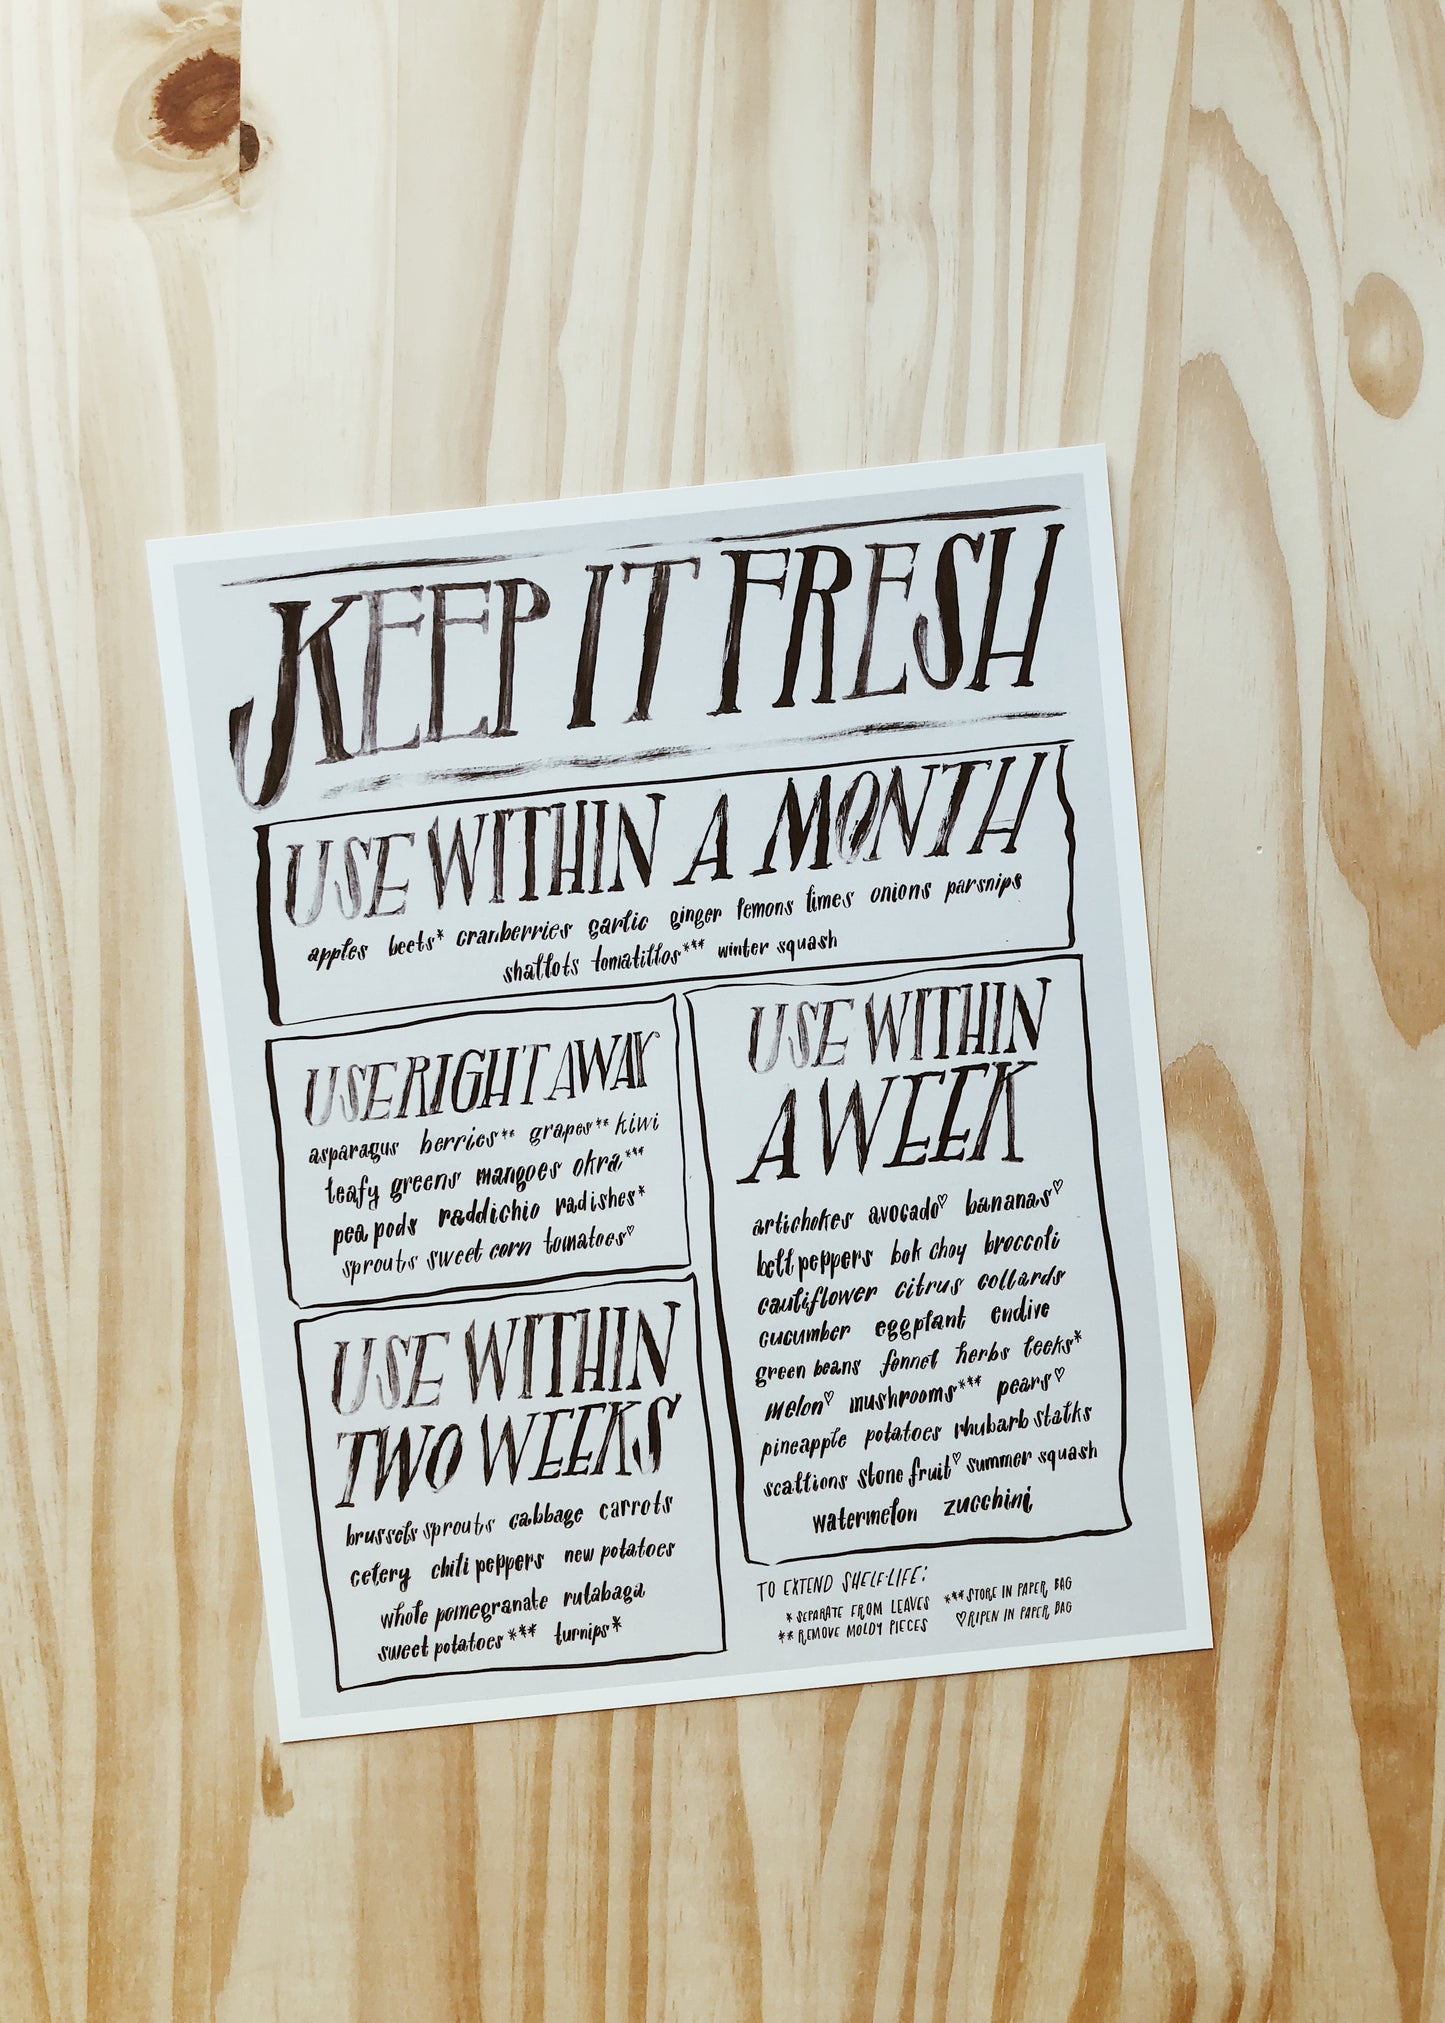 KEEP IT FRESH
USE WITHIN A MONTH
apples beets* cranberries garlic ginger lemons limes onions parsnips
shallots tomatillos*** winter squash
USE RIGHT AWAY
asparagus berries** grapes** kiwi
leafy greens mangoes okra***
pea pods raddichio radishes*
sprouts sweet corn tomatoes♡
USE WITHIN
TWO WEEKS
brussels sprouts cabbage carrots
celery chili peppers new potatoes
whole pomegranate rutabaga
sweet potatoes*** turnips*
USE WITHIN
A WEEK
artichokes avocado♡ bananas♡
bell peppers bok choy broccoli
cauliflower citrus collards
cucumber eggplant endive
green beans fennel herbs leeks*
melon♡ mushrooms*** pears♡
pineapple potatoes rhubarb stalks
scallions stone fruit♡ summer squash
watermelon zucchini
TO EXTEND SHELF-LIFE:
* SEPARATE FROM LEAVES *** STORE IN PAPER BAG
** REMOVE MOLDY PIECES ♡ RIPEN IN PAPER BAG